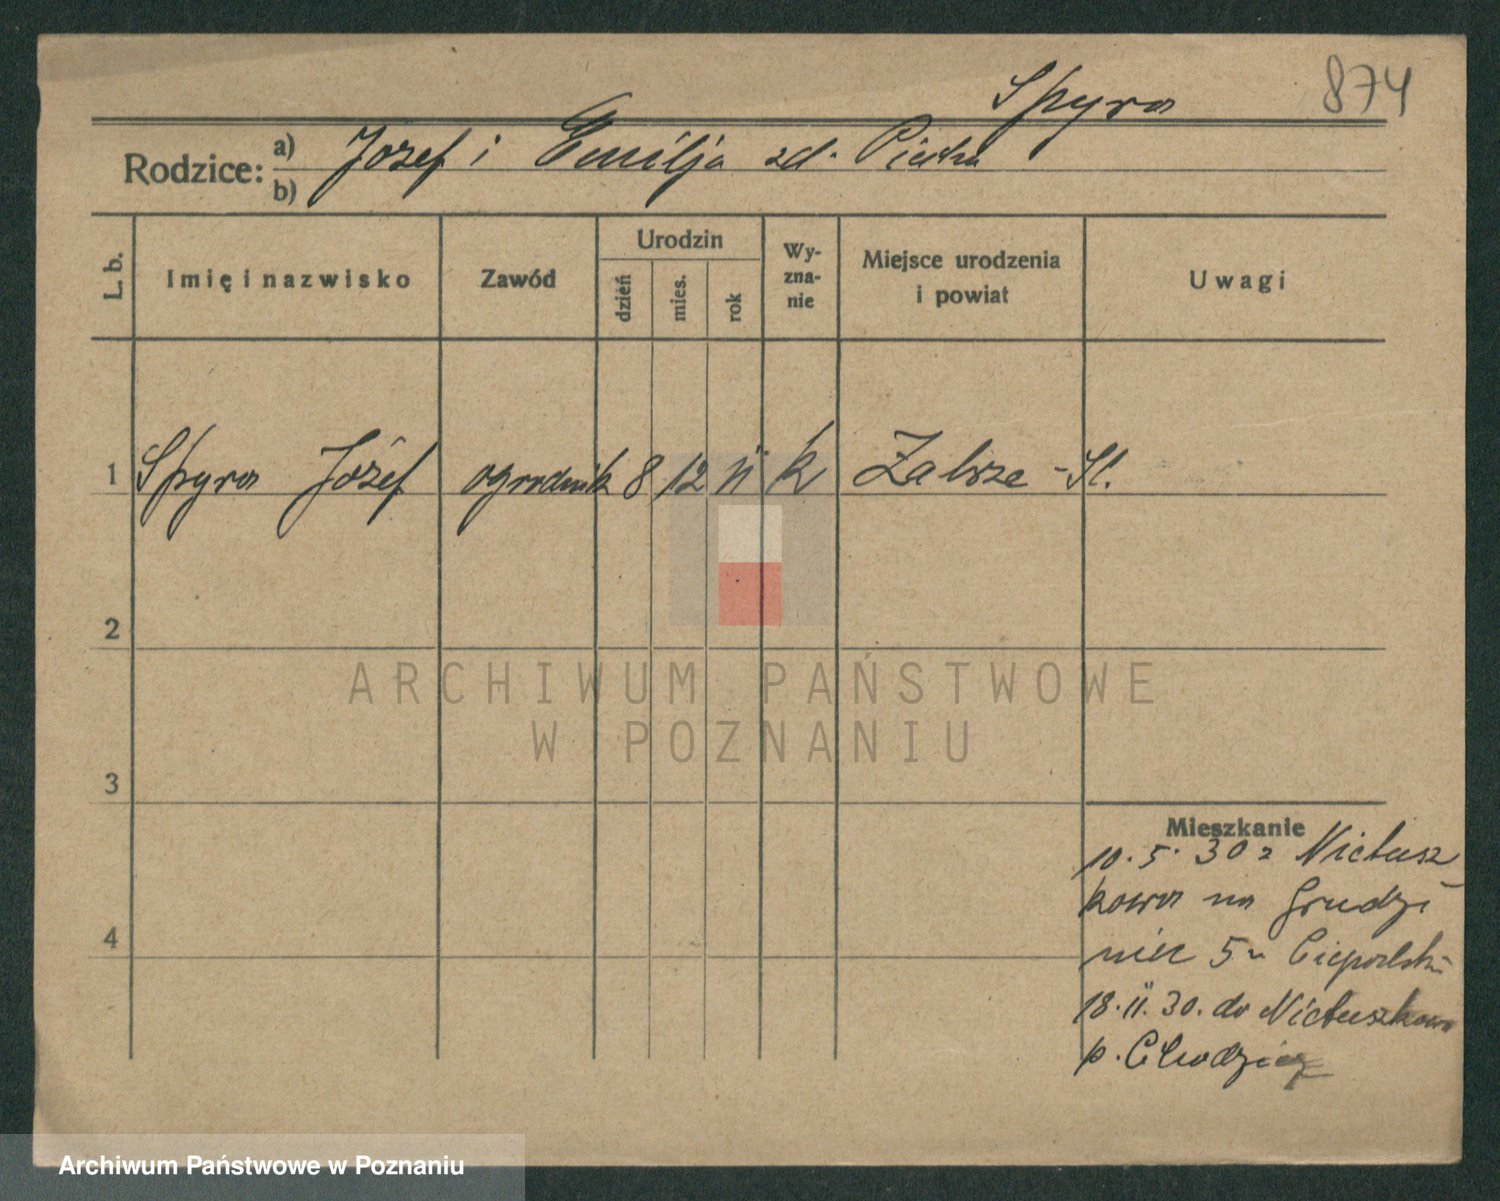 Spyra 874
Rodzice: a) Józef i Emilja zd. Piecha
b)
L. b. Imię i nazwisko Zawód Urodzin Wyznanie Miejsce urodzenia i powiat Uwagi
dzień mies. rok
1 Spyra Józef ogrodnik 8 12 11 k Zabrze - Śl.
2
3
4
Mieszkanie
10. 5. 30 z Nietusz
kowa na Grudzi
niec 5 u
18. 11. 30. do Nietuszkowa
p. Chodzież
ARCHIWUM PAŃSTWOWE
W POZNANIU
Archiwum Państwowe w Poznaniu